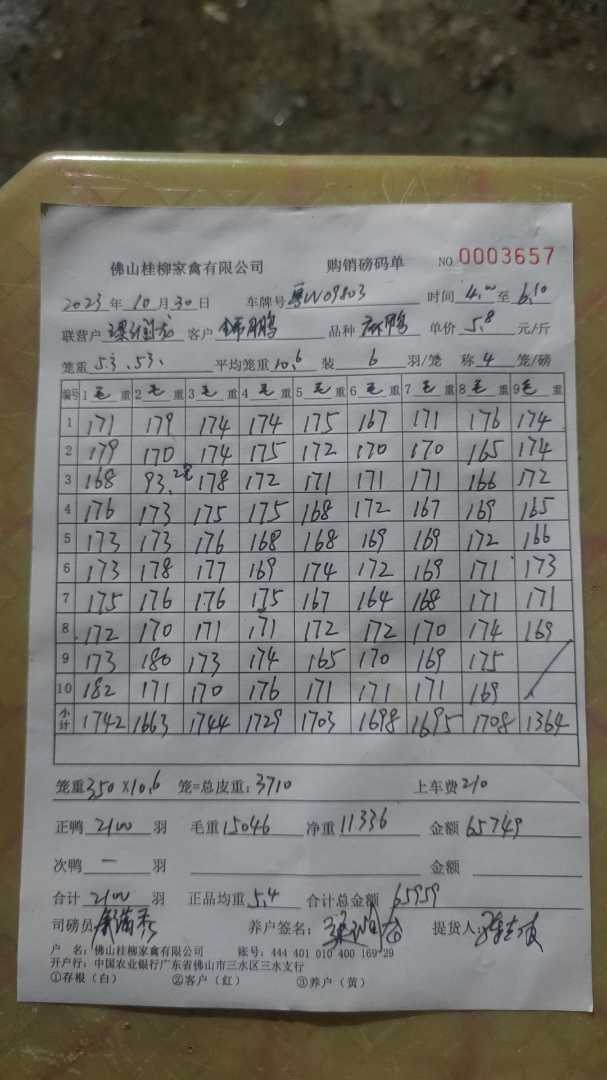 佛山桂柳家禽有限公司 购销磅码单 NO 0003657
2023年10月30日 车牌号 粤W09803 时间 4.00 至 6.10
联营户 客户 品种 麻鸭 单价 5.8 元/斤
笼重 53.53. 平均笼重 10.6 装 6 羽/笼 称 4 笼/磅
编号 1 毛 重 2 毛 重 3 毛 重 4 毛 重 5 毛 重 6 毛 重 7 毛 重 8 毛 重 9 毛 重
1 171 179 174 174 175 167 171 176 174
2 179 170 174 175 172 170 170 165 174
3 168 93.2笼 178 172 171 171 171 166 172
4 176 173 175 175 168 172 167 169 165
5 173 173 176 168 168 169 169 172 166
6 173 178 177 169 174 172 169 171 173
7 175 176 176 175 167 164 168 171 171
8 172 170 171 171 172 172 170 174 169
9 173 180 173 174 165 170 169 175
10 182 171 170 176 171 171 171 169
小计 1742 1663 1744 1729 1703 1698 1695 1708 1364
笼重 350×10.6 笼=总皮重: 3710 上车费 210
正鸭 2100 羽 毛重 15046 净重 11336 金额 65749
次鸭 一 羽 金额
合计 2100 羽 正品均重 5.4 合计总金额 65959
司磅员 养户签名: 提货人:
户 名: 佛山桂柳家禽有限公司 账号: 444 401 010 400 169 29
开户行: 中国农业银行广东省佛山市三水区三水支行
①存根(白) ②客户(红) ③养户(黄)